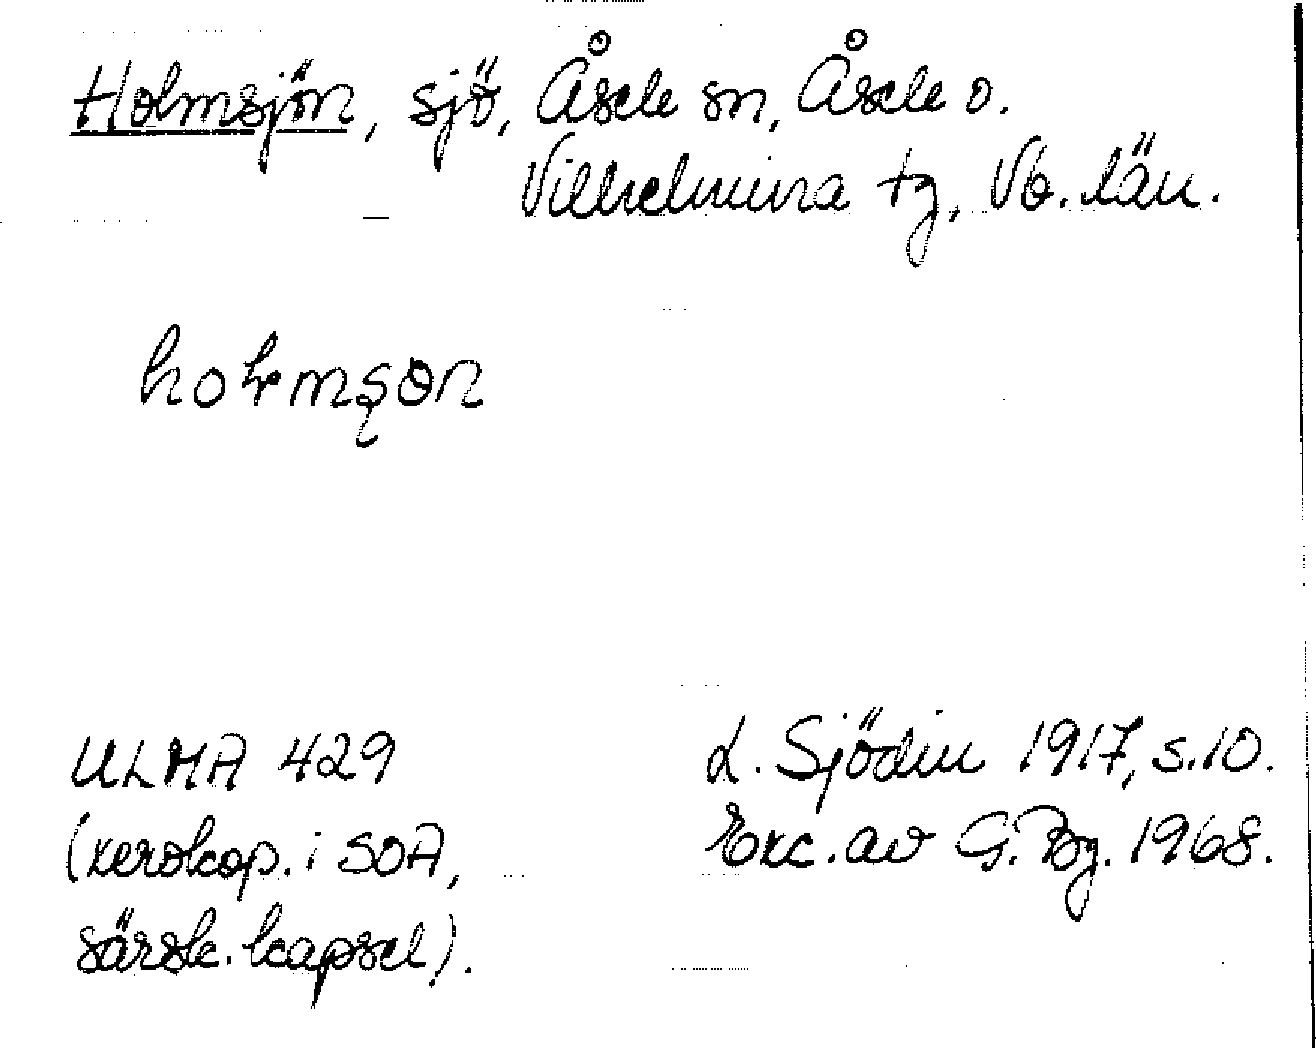 Holmsjön, sjö, Åsele sn, Åsele o.
Vilhelmina tg, Vb. län.
ULMA 429
(xerokop. i SOA,
särsk. kapsel).
L. Sjödin 1917, s.10.
Exc. av G. Bg. 1968.